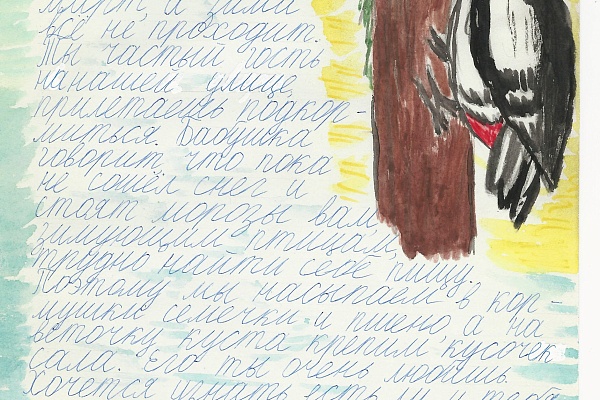 март, а зими
всё не проходит.
Ты частый гость
нанашей улице,
прилетаешь подкор-
миться. Бабушка
говорит что пока
не сошёл снег и
стоят морозы вам,
зимующим птицам,
трудно найти себе пищу.
Поэтому мы насыпаем в кор-
мушки семечки и пшено, а на
веточку куста крепим кусочек
сала. Его ты очень любишь.
Хочется узнать есть ли у тебя